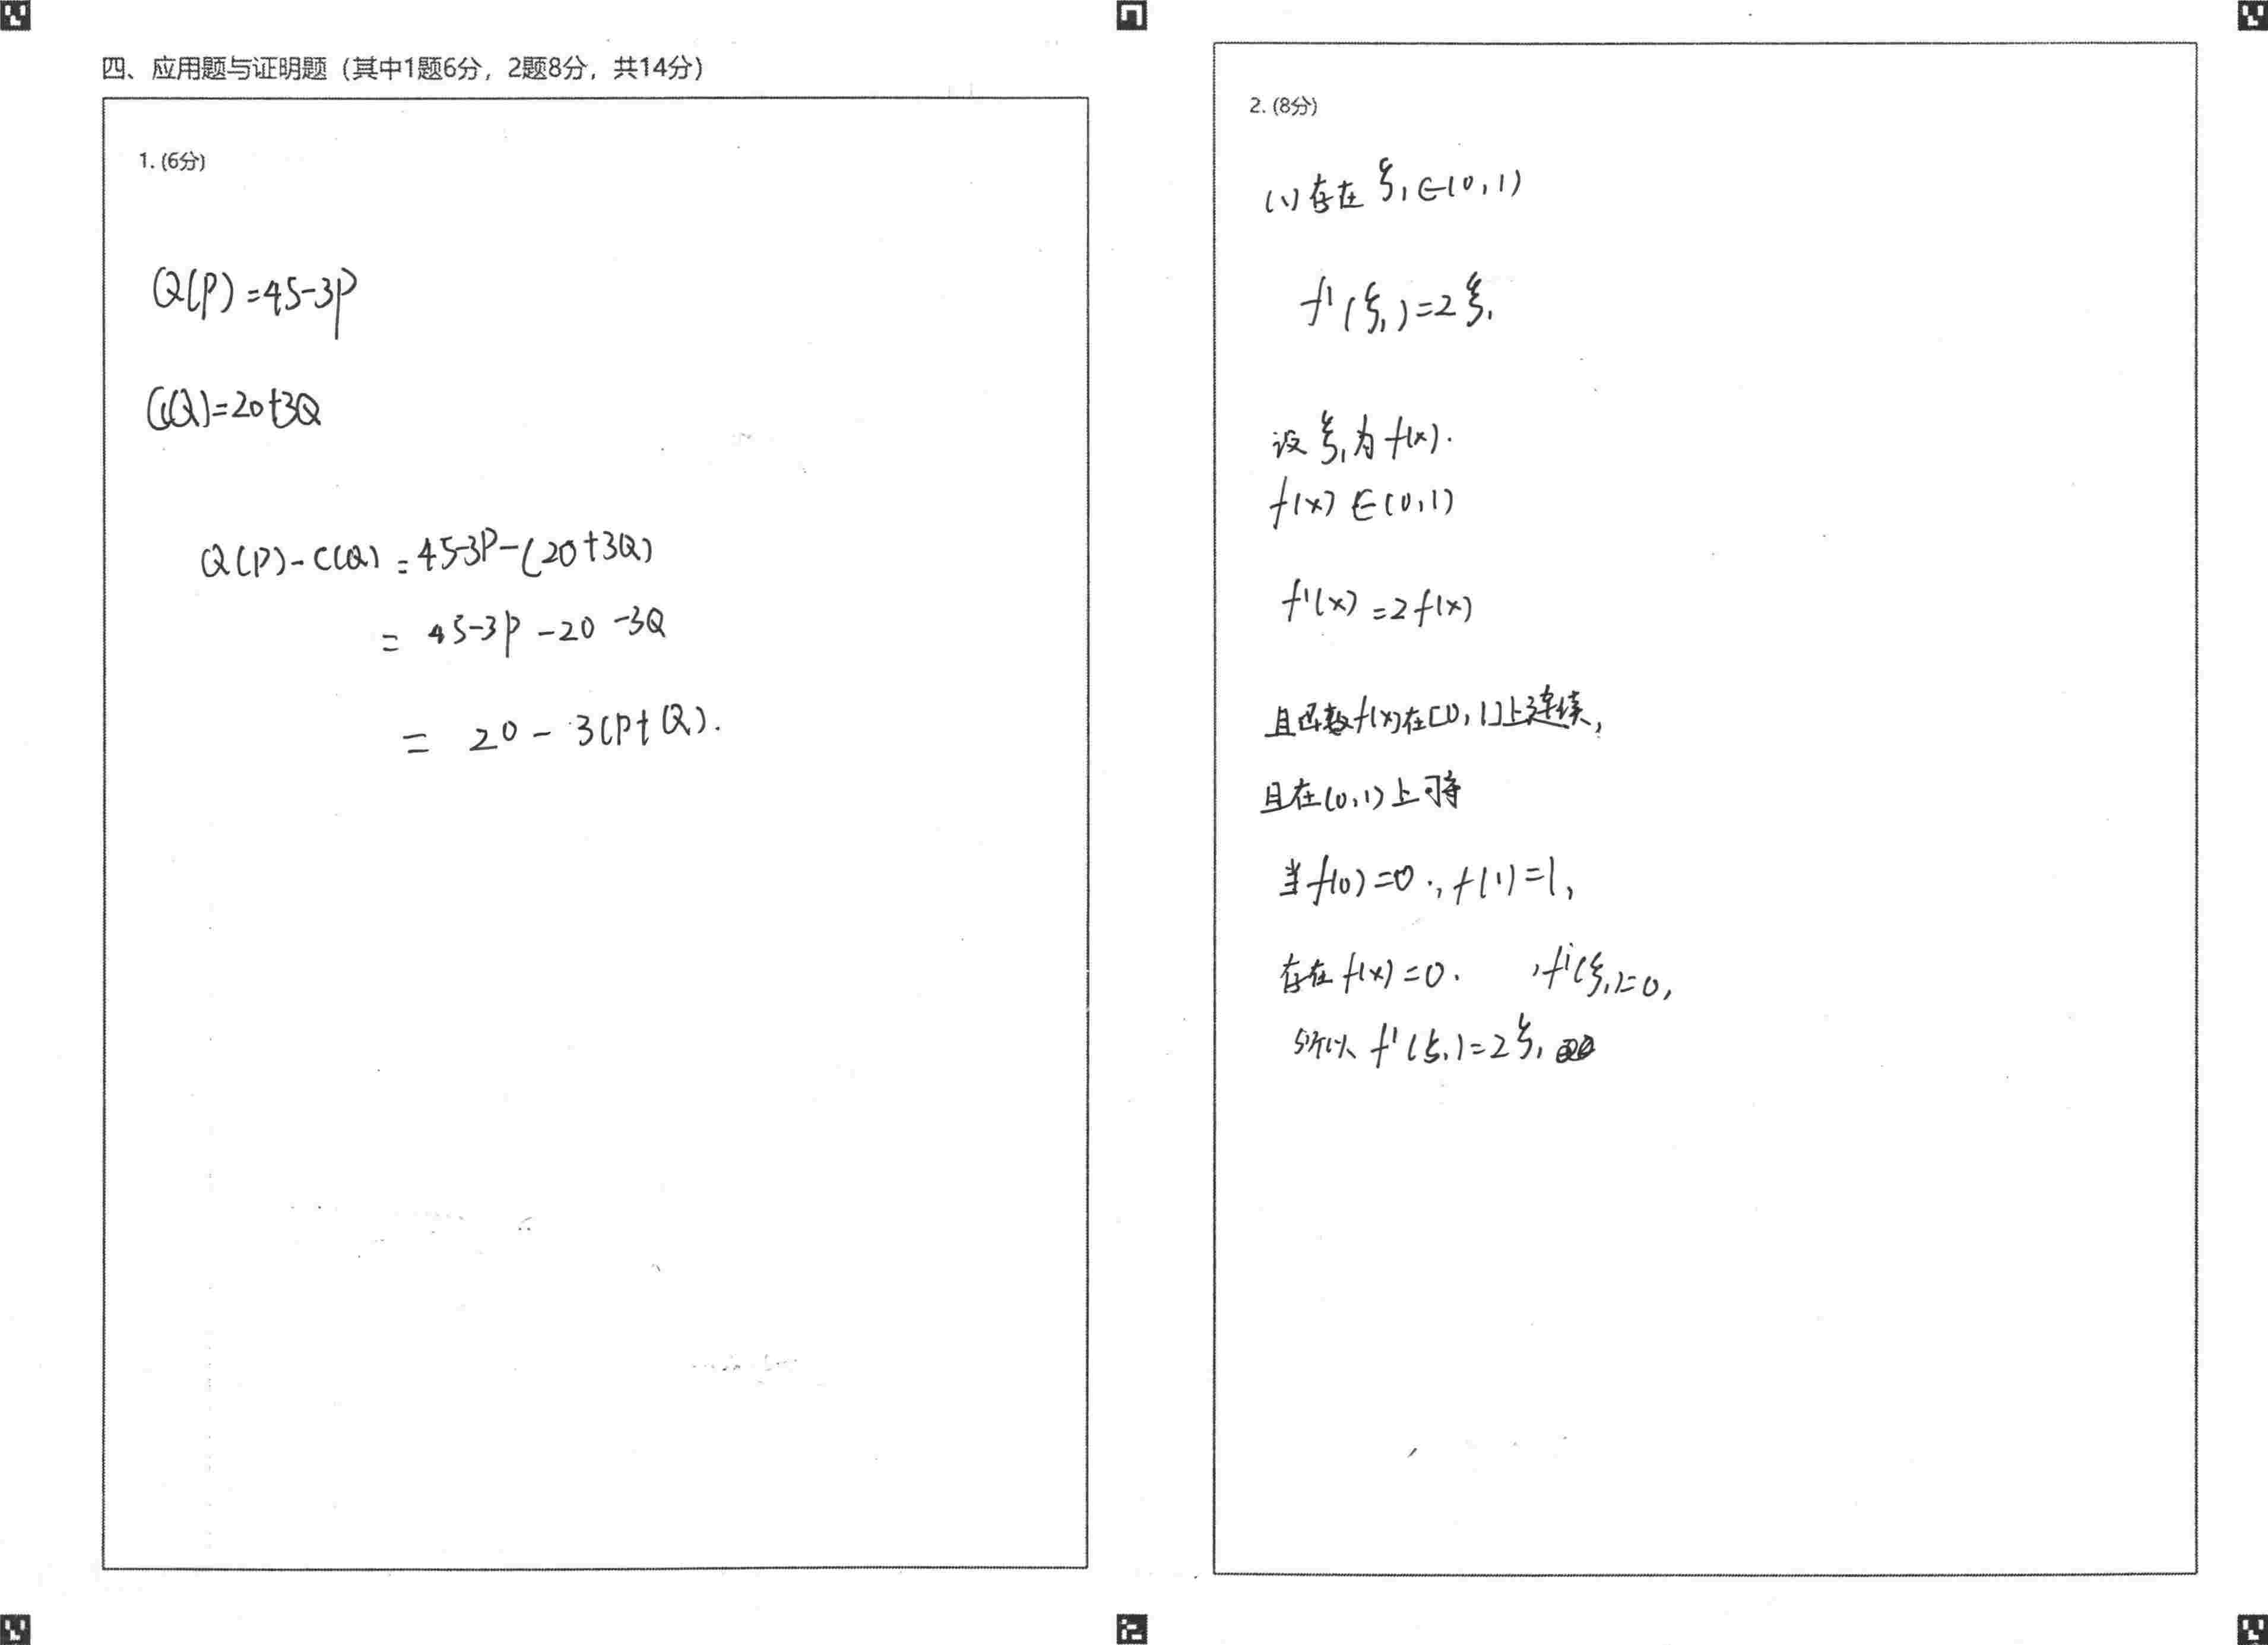 四、应用题与证明题（其中1题6分，2题8分，共14分）
1. (6分)
Q(P)=45-3P
C(Q)=20+3Q
Q(P)-C(Q)=45-3P-(20+3Q)
= 45-3P-20-3Q
= 20-3(P+Q).
2. (8分)
(1)存在ξ₁∈(0,1)
f'(ξ₁)=2ξ₁
设ξ₁为f(x).
f(x)∈(0,1)
f'(x)=2f(x)
且函数f(x)在[0,1]上连续,
且在(0,1)上可导
当f(0)=0,f(1)=1,
存在f(x)=0. ,f'(ξ₁)=0,
所以f'(ξ₁)=2ξ₁